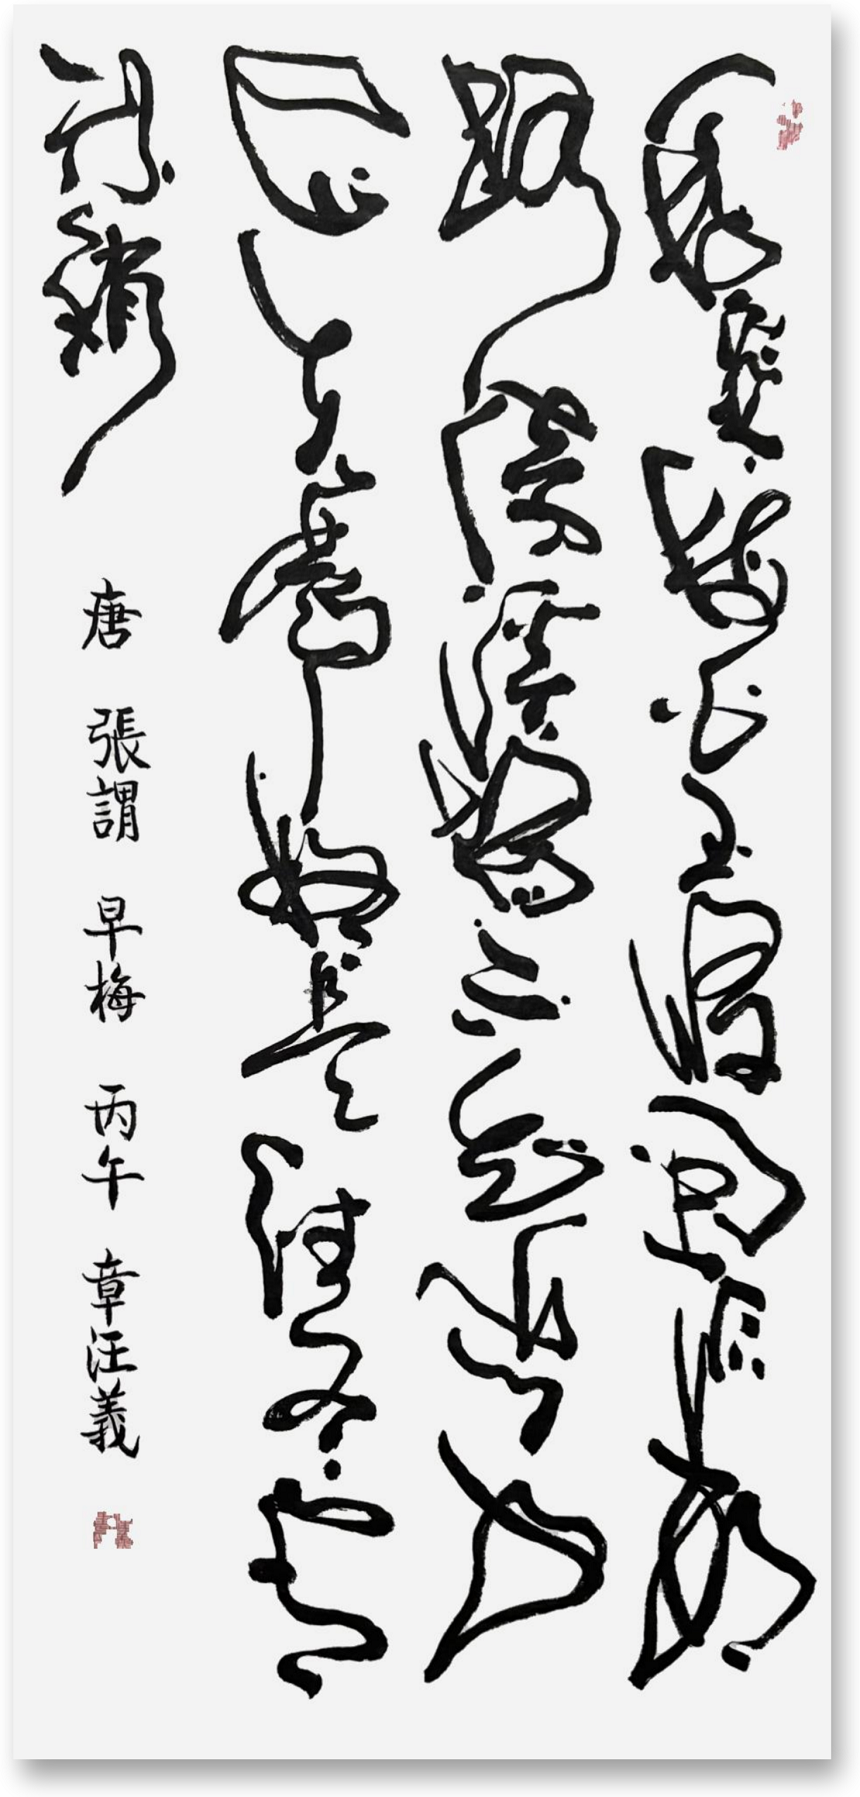 一樹寒梅白玉條迥臨村
路傍溪橋不知近水
花先發疑是經冬雪
銷
唐 張謂 早梅 丙午 章汪義